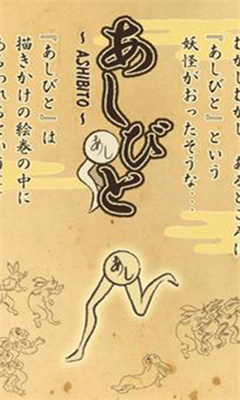 むかしむかし あるところに
『あしびと』という
妖怪がおったそうな・・・
あしびと
～ASHIBITO～
あし
『あしびと』は
描きかけの絵巻の中に
あらわれるという
あし